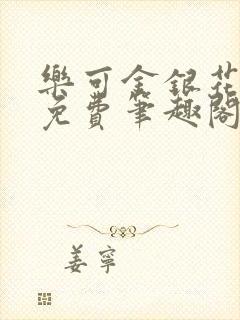 樂可金銀花
免費筆趣閣
姜寧